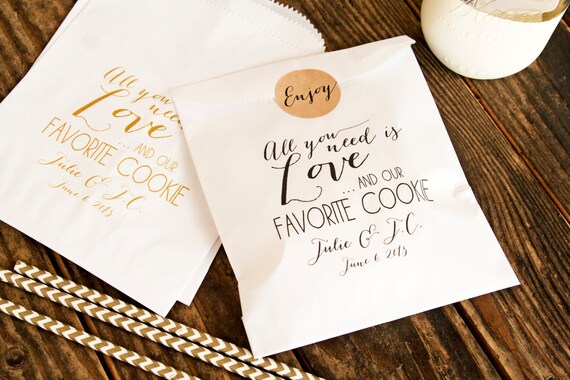 All you
need is
Love
... AND OUR
FAVORITE COOKIE
Julie & J.C.
June 6, 2015
Enjoy
All you
need is
Love
... AND OUR
FAVORITE COOKIE
Julie & J.C.
June 6, 2015